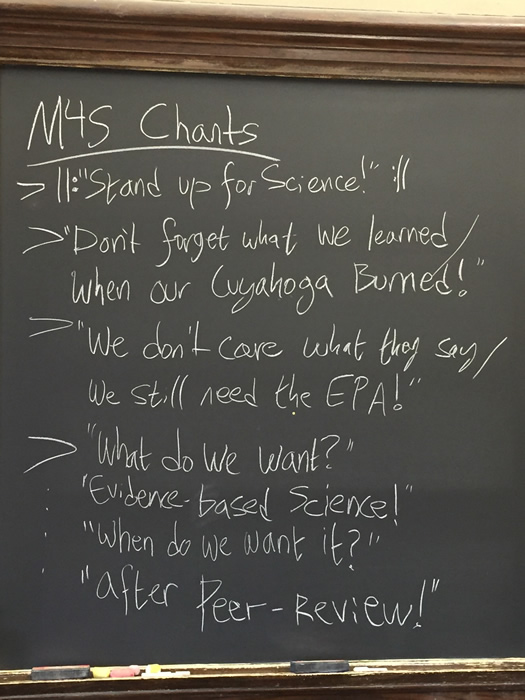 M4S Chants
> ||:"Stand up for Science!" :||
> "Don't forget what we learned/
When our Cuyahoga Burned!"
> "We don't care what they say/
We still need the EPA!"
> "What do we want?"
"Evidence-based Science!"
"When do we want it?"
"after Peer-Review!"